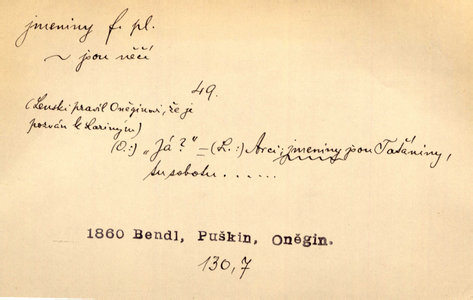 jmeniny f. pl.
~ jsou něčí
49.
(Lenski pravil Oněginovi, že je
pozván k Larinym)
(O.:) „Já?" – (L.:) Arci; jmeniny jsou Taťániny,
tu sobotu......
1860 Bendl, Puškin, Oněgin.
130,7